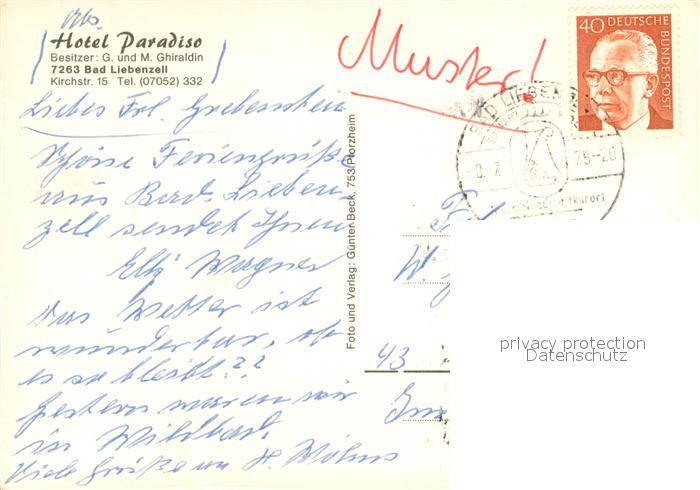 Abs.
Hotel Paradiso
Besitzer: G. und M. Ghiraldin
7263 Bad Liebenzell
Kirchstr. 15 Tel. (07052) 332
Muster!
40 DEUTSCHE BUNDESPOST
Liebes Frl. Grebenstein
Schöne Feriengrüße
aus Bad Lieben-
zell sendet Ihnen
Wagner
Das Wetter ist
wunderbar, ob
es so bleibt??
Gestern waren wir
in Wildbad.
Viele Grüße an H.
Foto und Verlag: Günter Beck, 753 Pforzheim
75-20
W.
43
privacy protection
Datenschutz